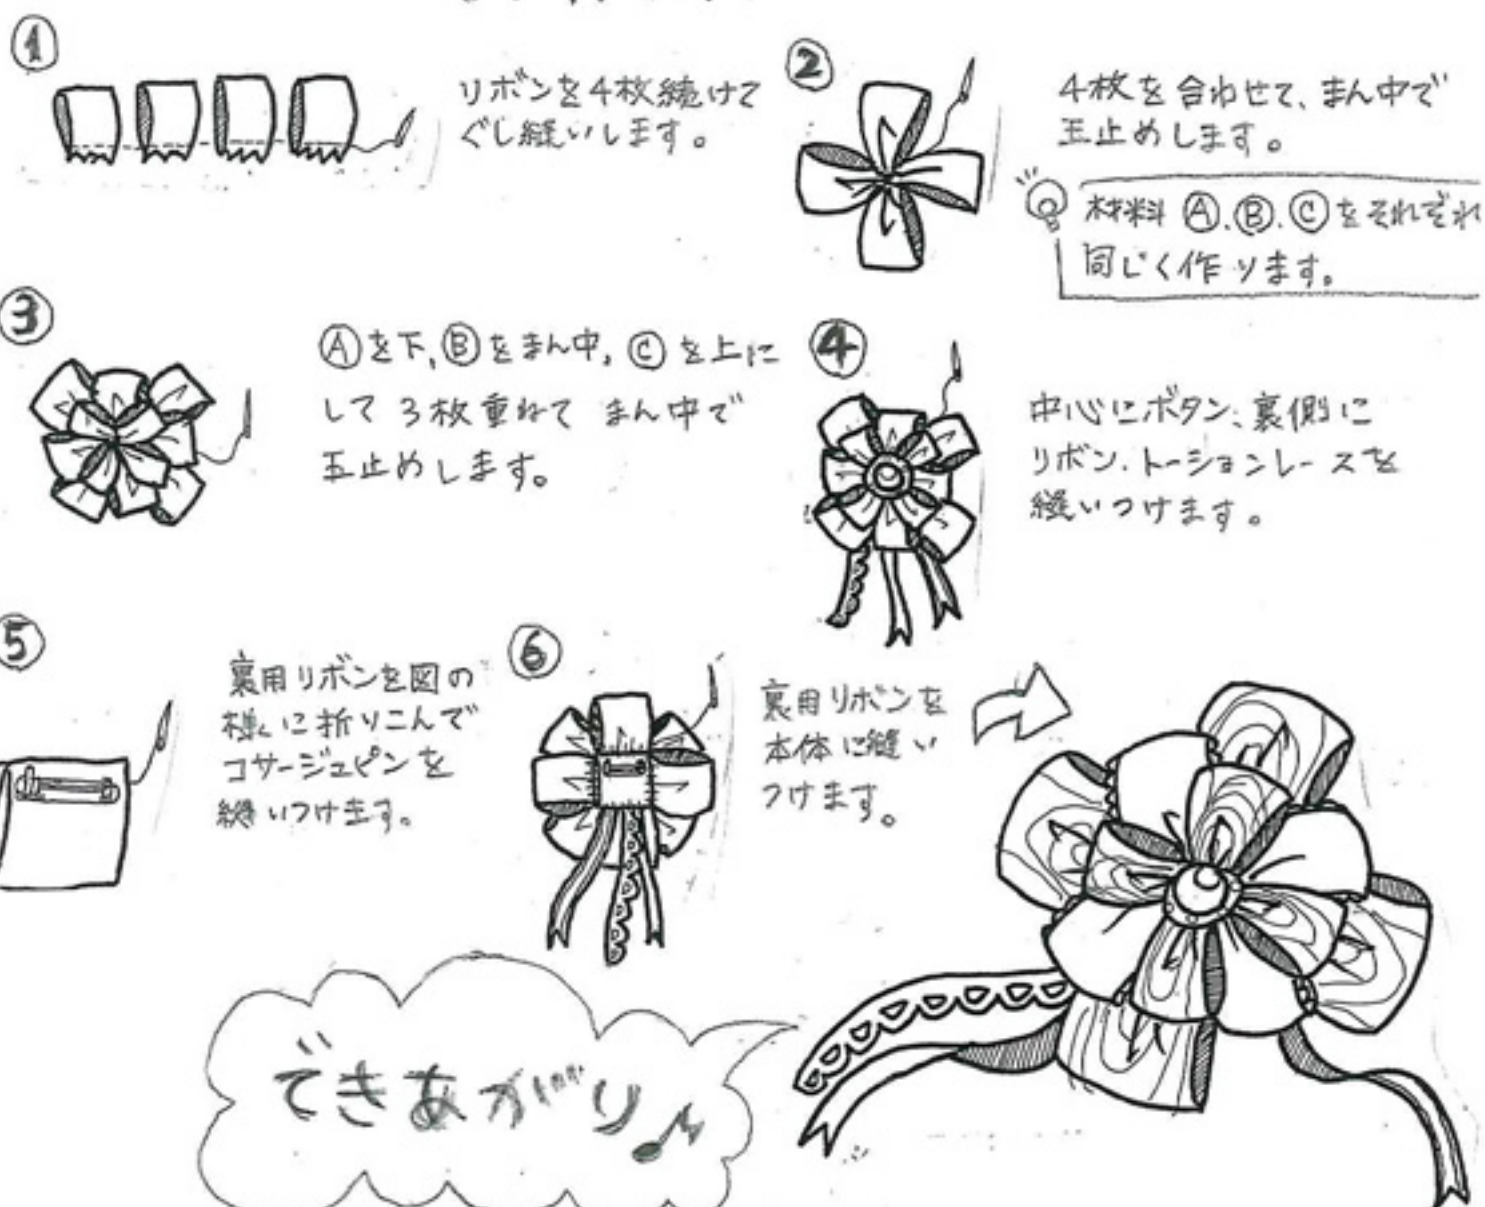 ①
リボンを4枚続けて
ぐし縫いします。
②
4枚を合わせて、まん中で
玉止めします。
材料 Ⓐ.Ⓑ.Ⓒをそれぞれ
同じく作ります。
③
Ⓐを下、Ⓑをまん中、Ⓒを上に
して 3枚重ねて まん中で
玉止めします。
④
中心にボタン、裏側に
リボン、トーションレースを
縫いつけます。
⑤
裏用リボンを図の
様に折りこんで
コサージュピンを
縫いつけます。
⑥
裏用リボンを
本体に縫い
つけます。
できあがり♪